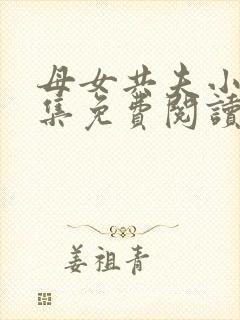 母女共夫小
集免费阅读
姜祖青